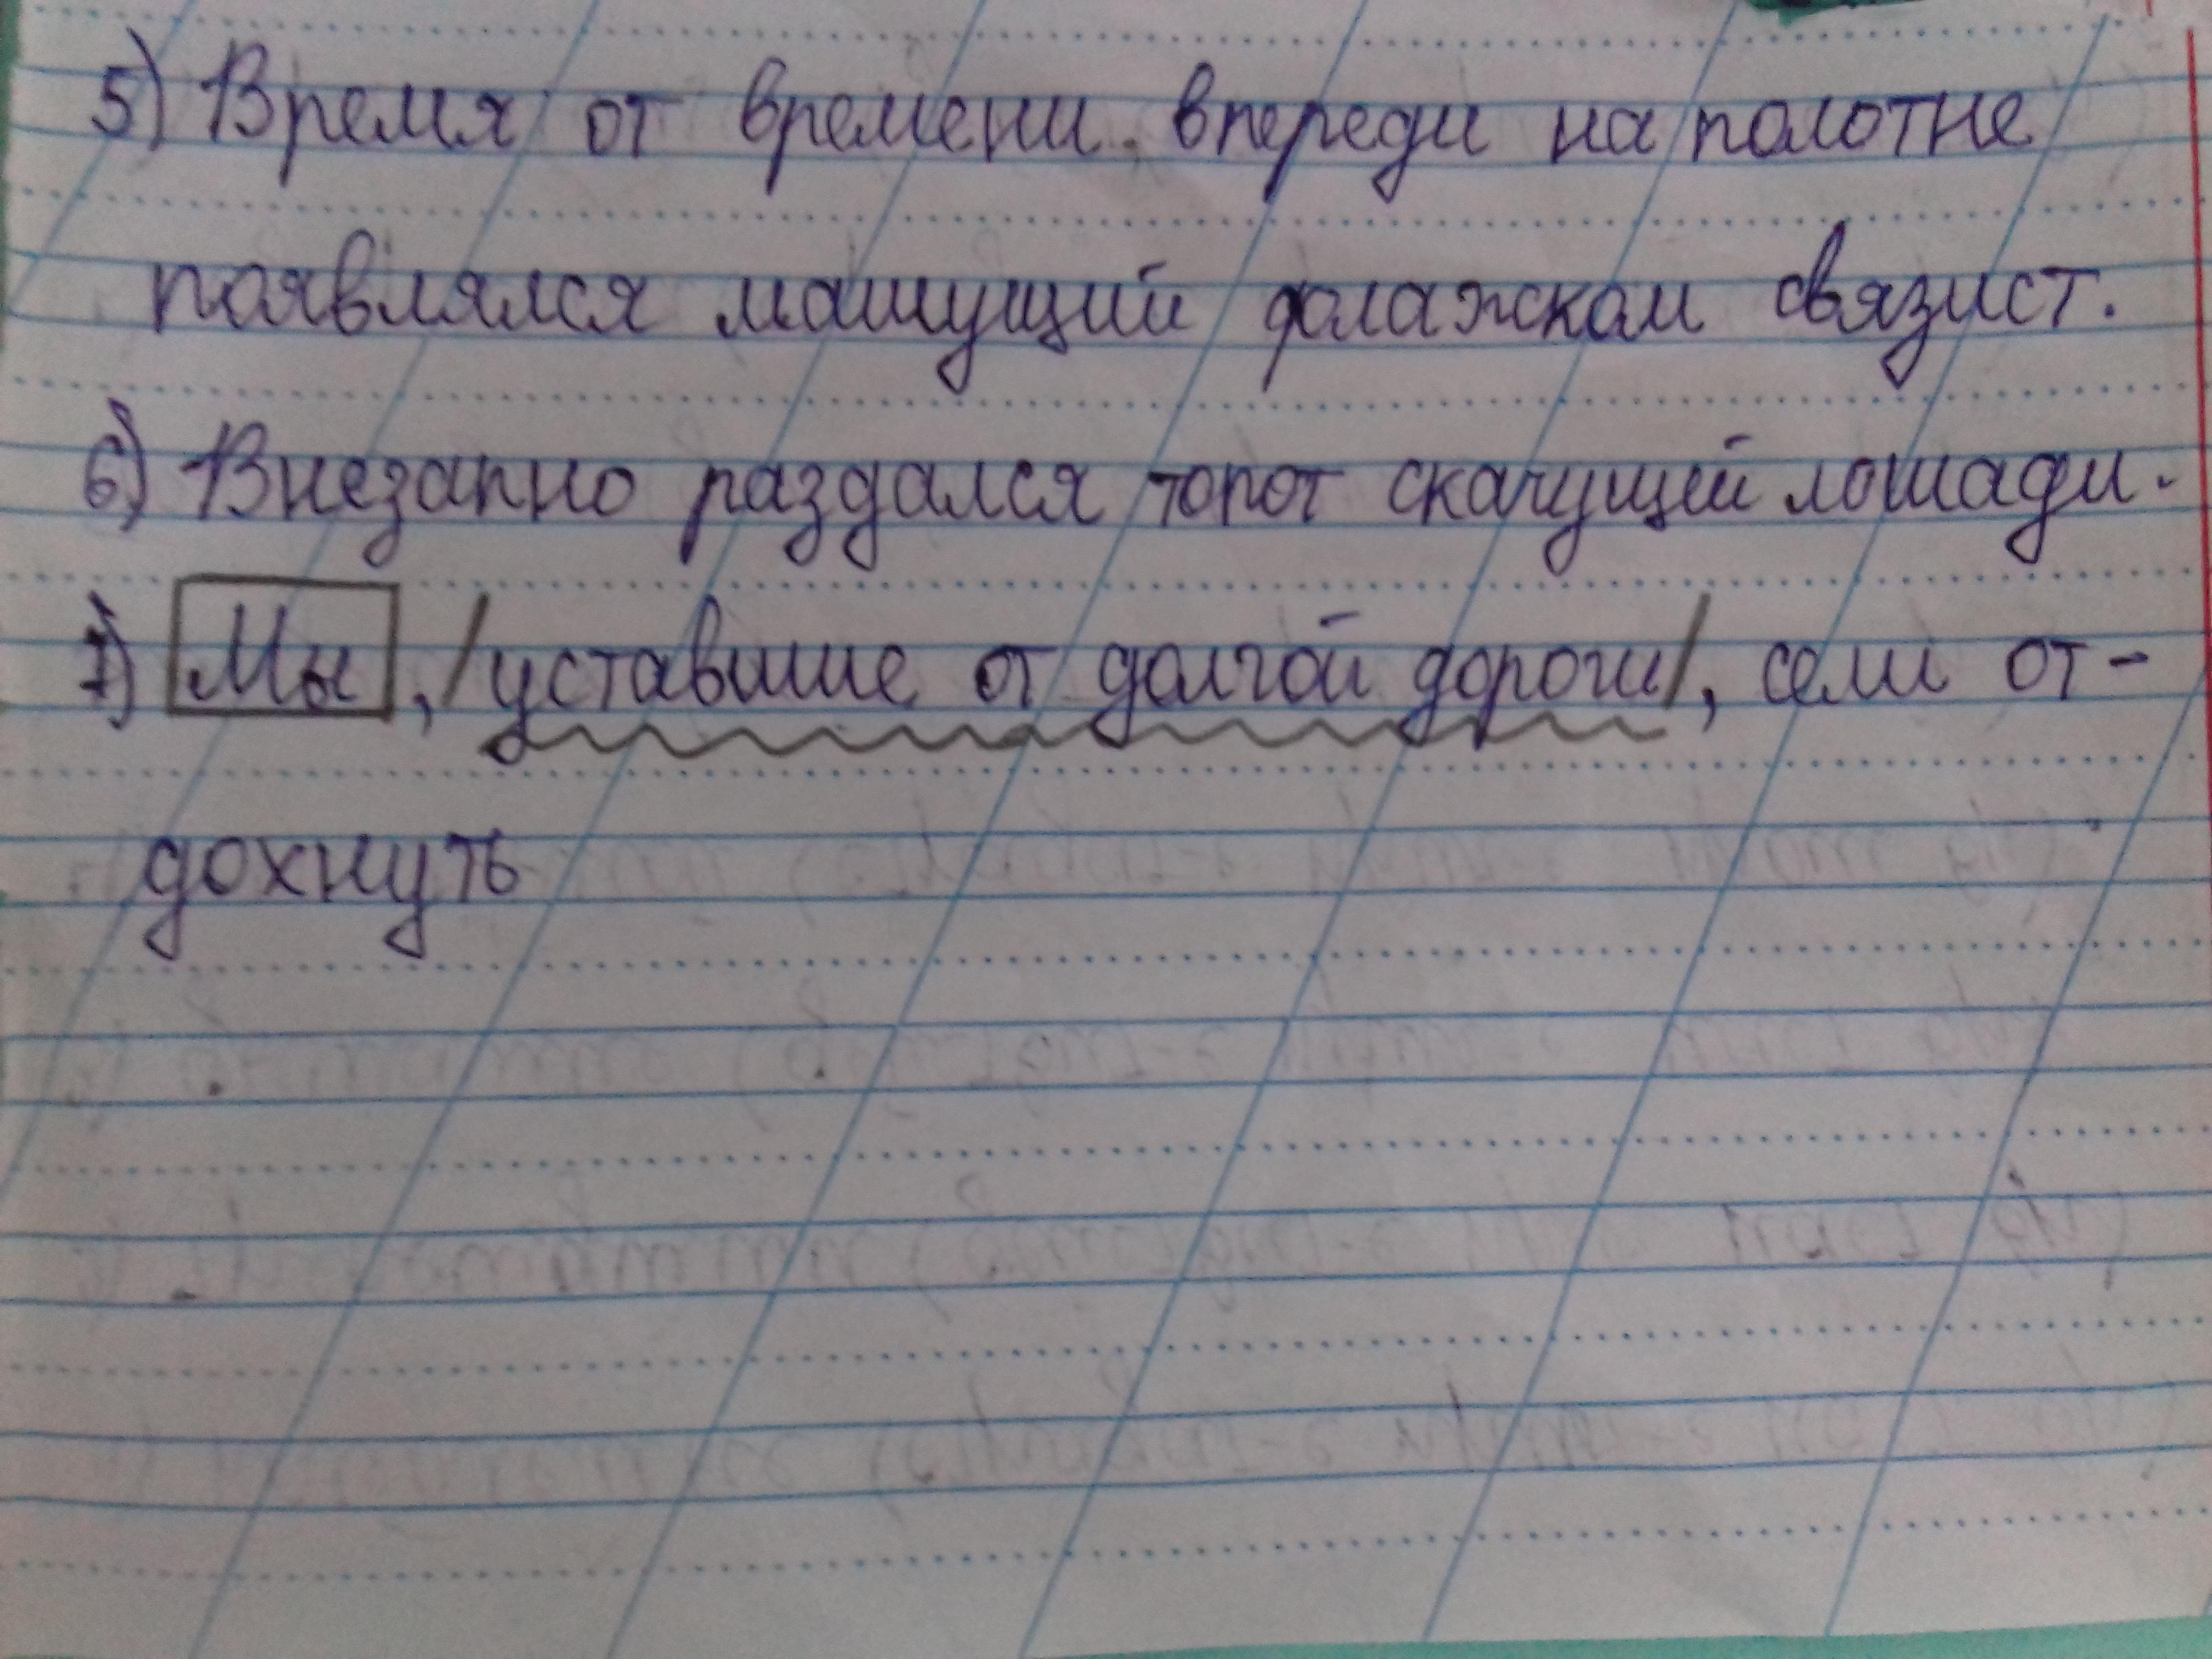 5) Время от времени впереди на полотне
появлялся машущий флажком связист.
6) Внезапно раздался топот скачущей лошади.
7) Мы, /уставшие от долгой дороги/, сели от-
дохнуть